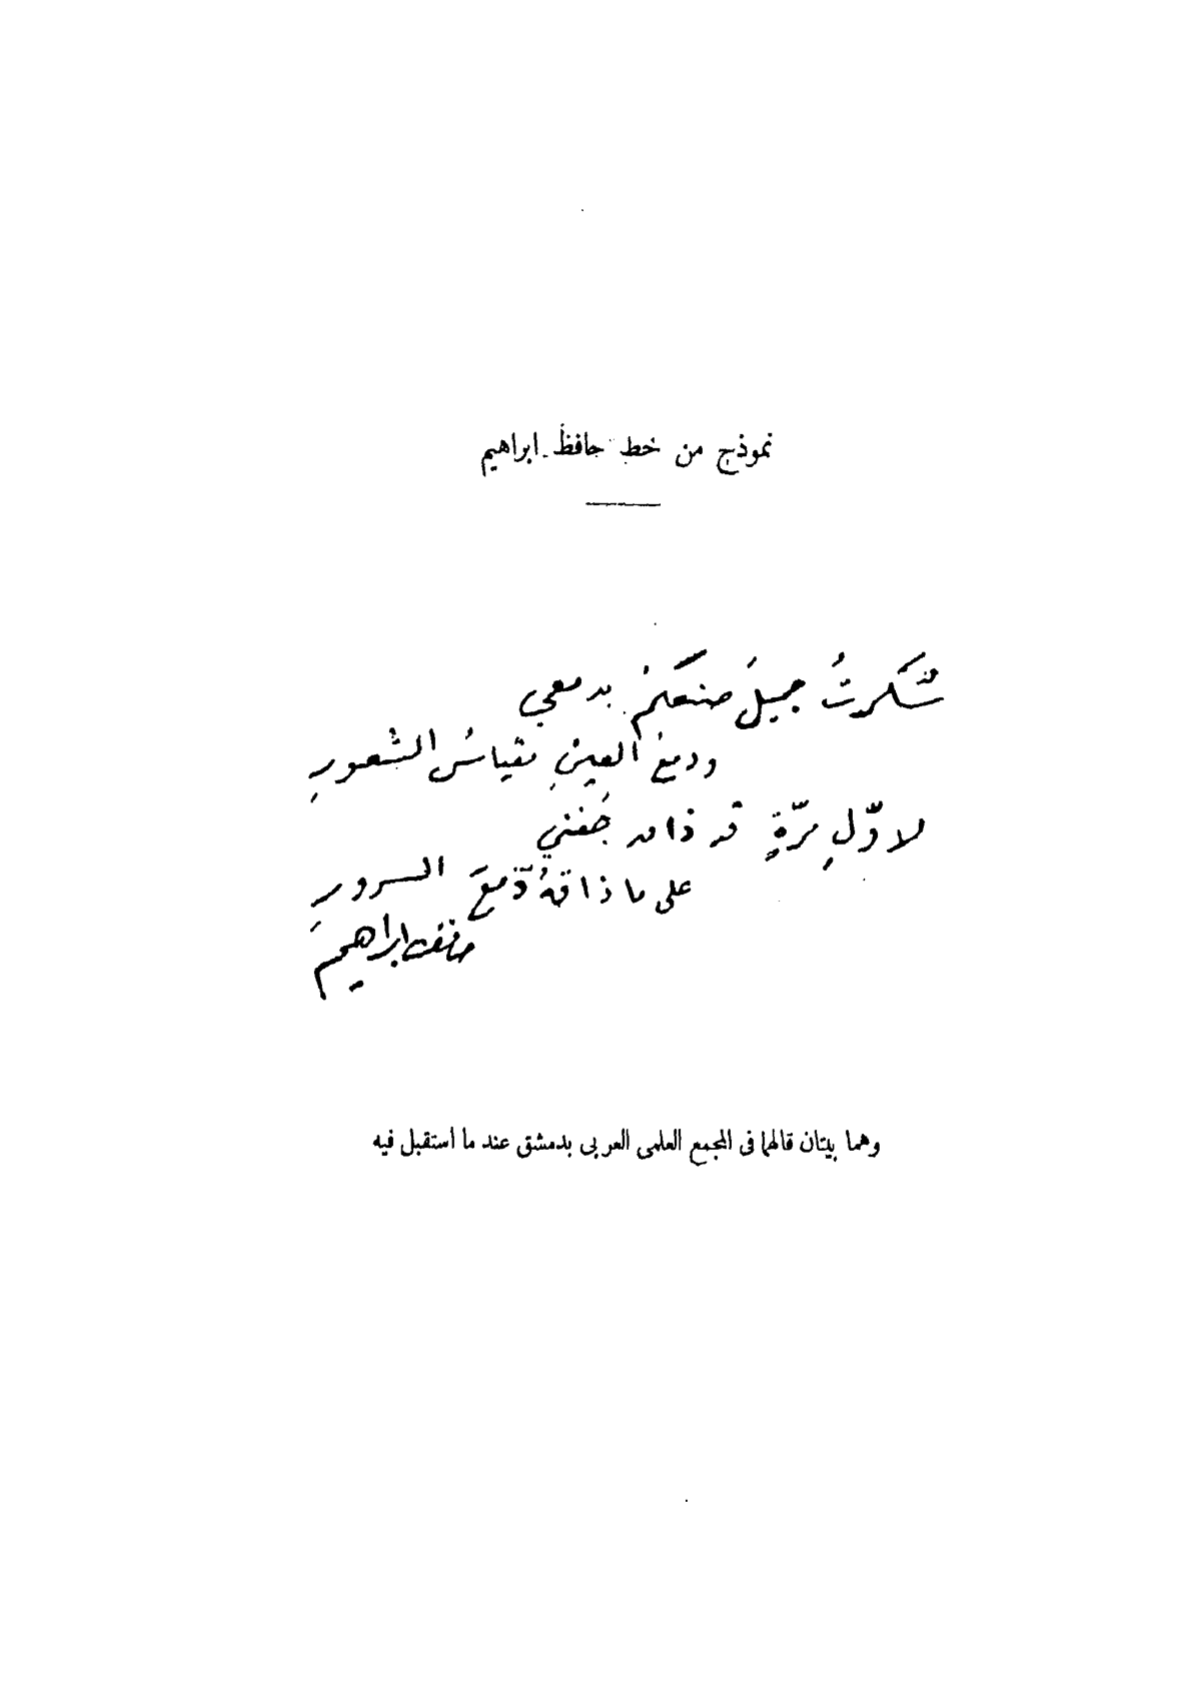 نموذج من خط حافظ ابراهيم
شكرتُ جميلَ صنعكمُ بدمعي
ودمعُ العينِ مقياسُ الشعورِ
لاوّلِ مرّةٍ قد ذاق جَفني
على ما ذاقهُ دمعَ السرورِ
حافظ ابراهيم
وهما بيتان قالهما فى المجمع العلمى العربى بدمشق عند ما استقبل فيه